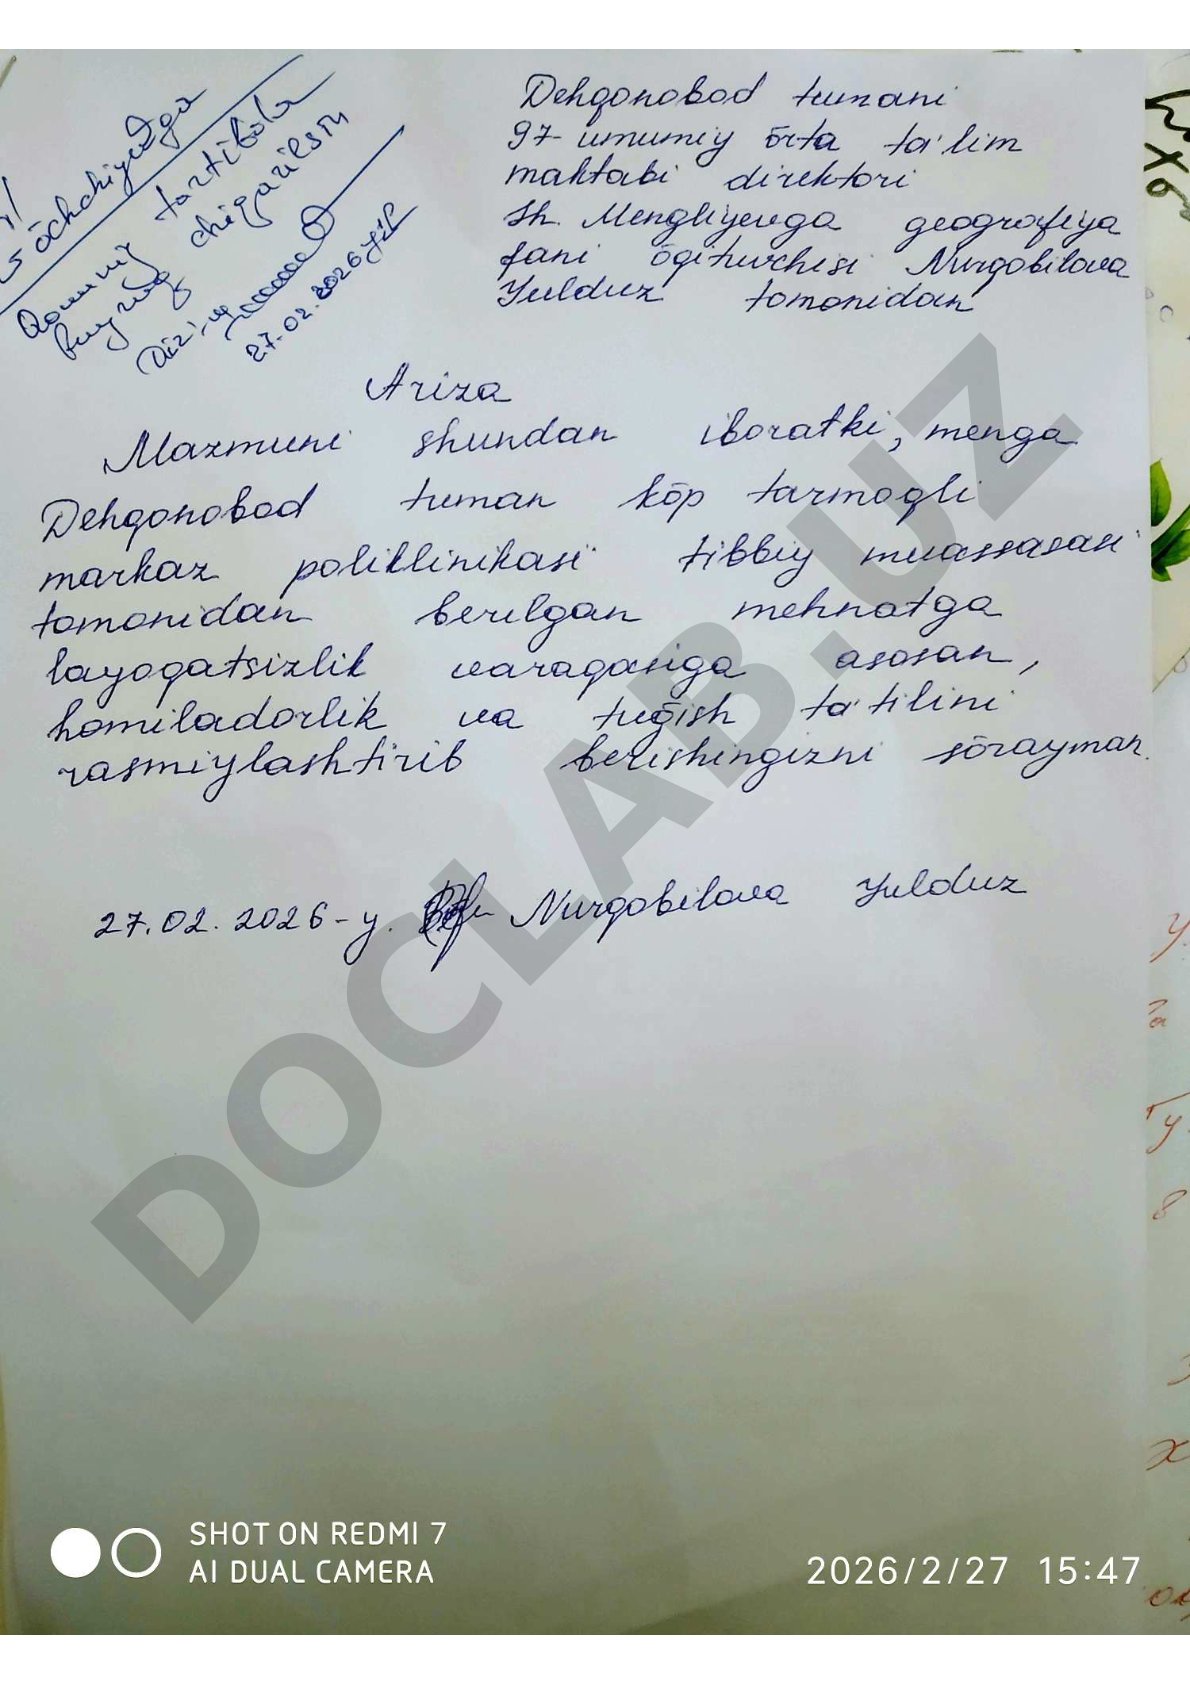 Sh. Sōchchiyevga
Qonuniy tartibda
buyruq chiqarilsin
27.02.2026 yil
Dehqonobod tumani
97- umumiy ōrta ta'lim
maktabi direktori
Sh. Mengliyevga geografiya
fani ōqituvchisi Nurqobilova
Yulduz tomonidan
Ariza
Mazmuni shundan iboratki, menga
Dehqonobod tuman kōp tarmoqli
markaz poliklinikasi tibbiy muassasasi
tomonidan berilgan mehnatga
layoqatsizlik varaqasiga asosan,
homiladorlik va tuğish ta'tilini
rasmiylashtirib berishingizni sōrayman.
27.02.2026-y. Nurqobilova Yulduz
DOCLAB.UZ
SHOT ON REDMI 7
AI DUAL CAMERA
2026/2/27 15:47